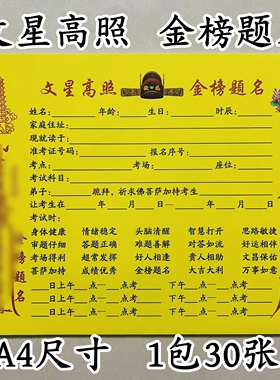 文星高照 金榜题名
文星高照 金榜題名
姓名: 年龄: 生日: 时辰:
家庭住址:
现就读于:
准考证号码: 报名序号:
考点: 考场: 座位:
考试科目:
弟子: 跪拜，祈求佛菩萨加持考生
让考生在 年 月 日— 年 月 日
考试时:
身体健康 情绪稳定 头脑清醒 智慧打开 思路敏捷
审题仔细 答题正确 难题善解 对答如流 好运相伴
考场得利 超常发挥 好人相助 贵人相助 文昌保佑
菩萨加持 成绩优秀 金榜题名 大吉大利 万事如意
日上午 点— 点考 下午 点— 点考
日上午 点— 点考 下午 点— 点考
日上午 点— 点考 下午 点— 点考
金榜题名
A4尺寸 1包30张